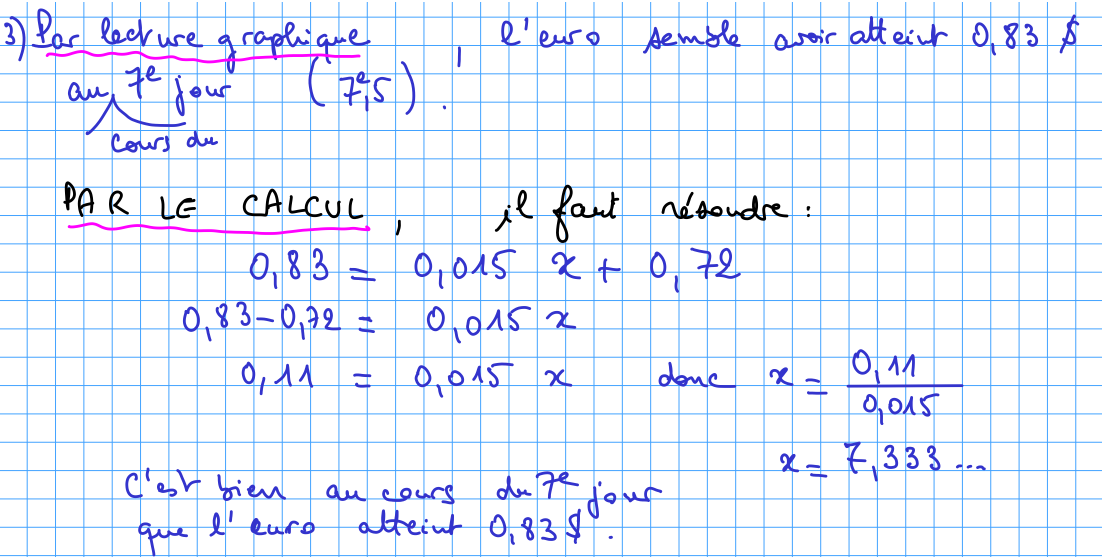 3) Par lecture graphique, l'euro semble avoir atteint 0,83 $
au 7e jour (7e,5).
cours du
PAR LE CALCUL, il faut résoudre :
0,83 = 0,015 x + 0,72
0,83-0,72 = 0,015 x
0,11 = 0,015 x donc x = 0,11/0,015
x = 7,333...
C'est bien au cours du 7e jour
que l'euro atteint 0,83 $.